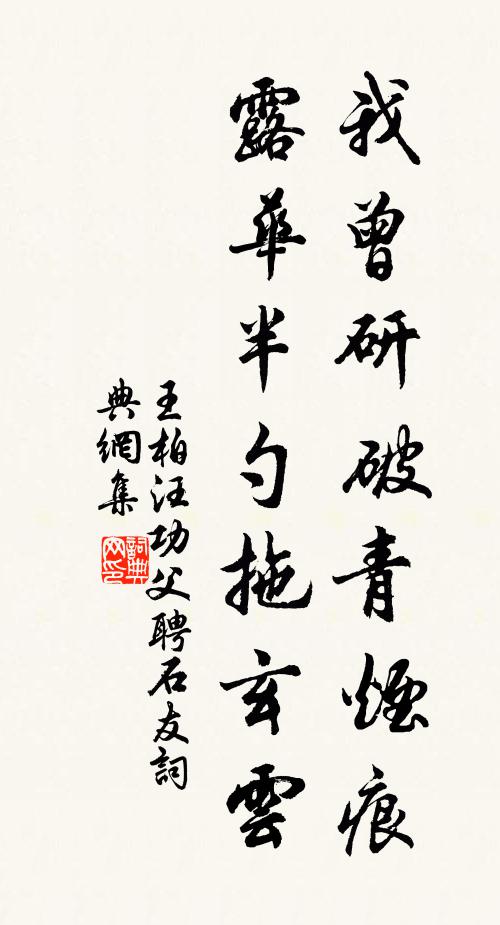 我曾研破青煙痕
露華半勺拖玄雲
王柏汪功父聘石友詞
典網集
詞典网印